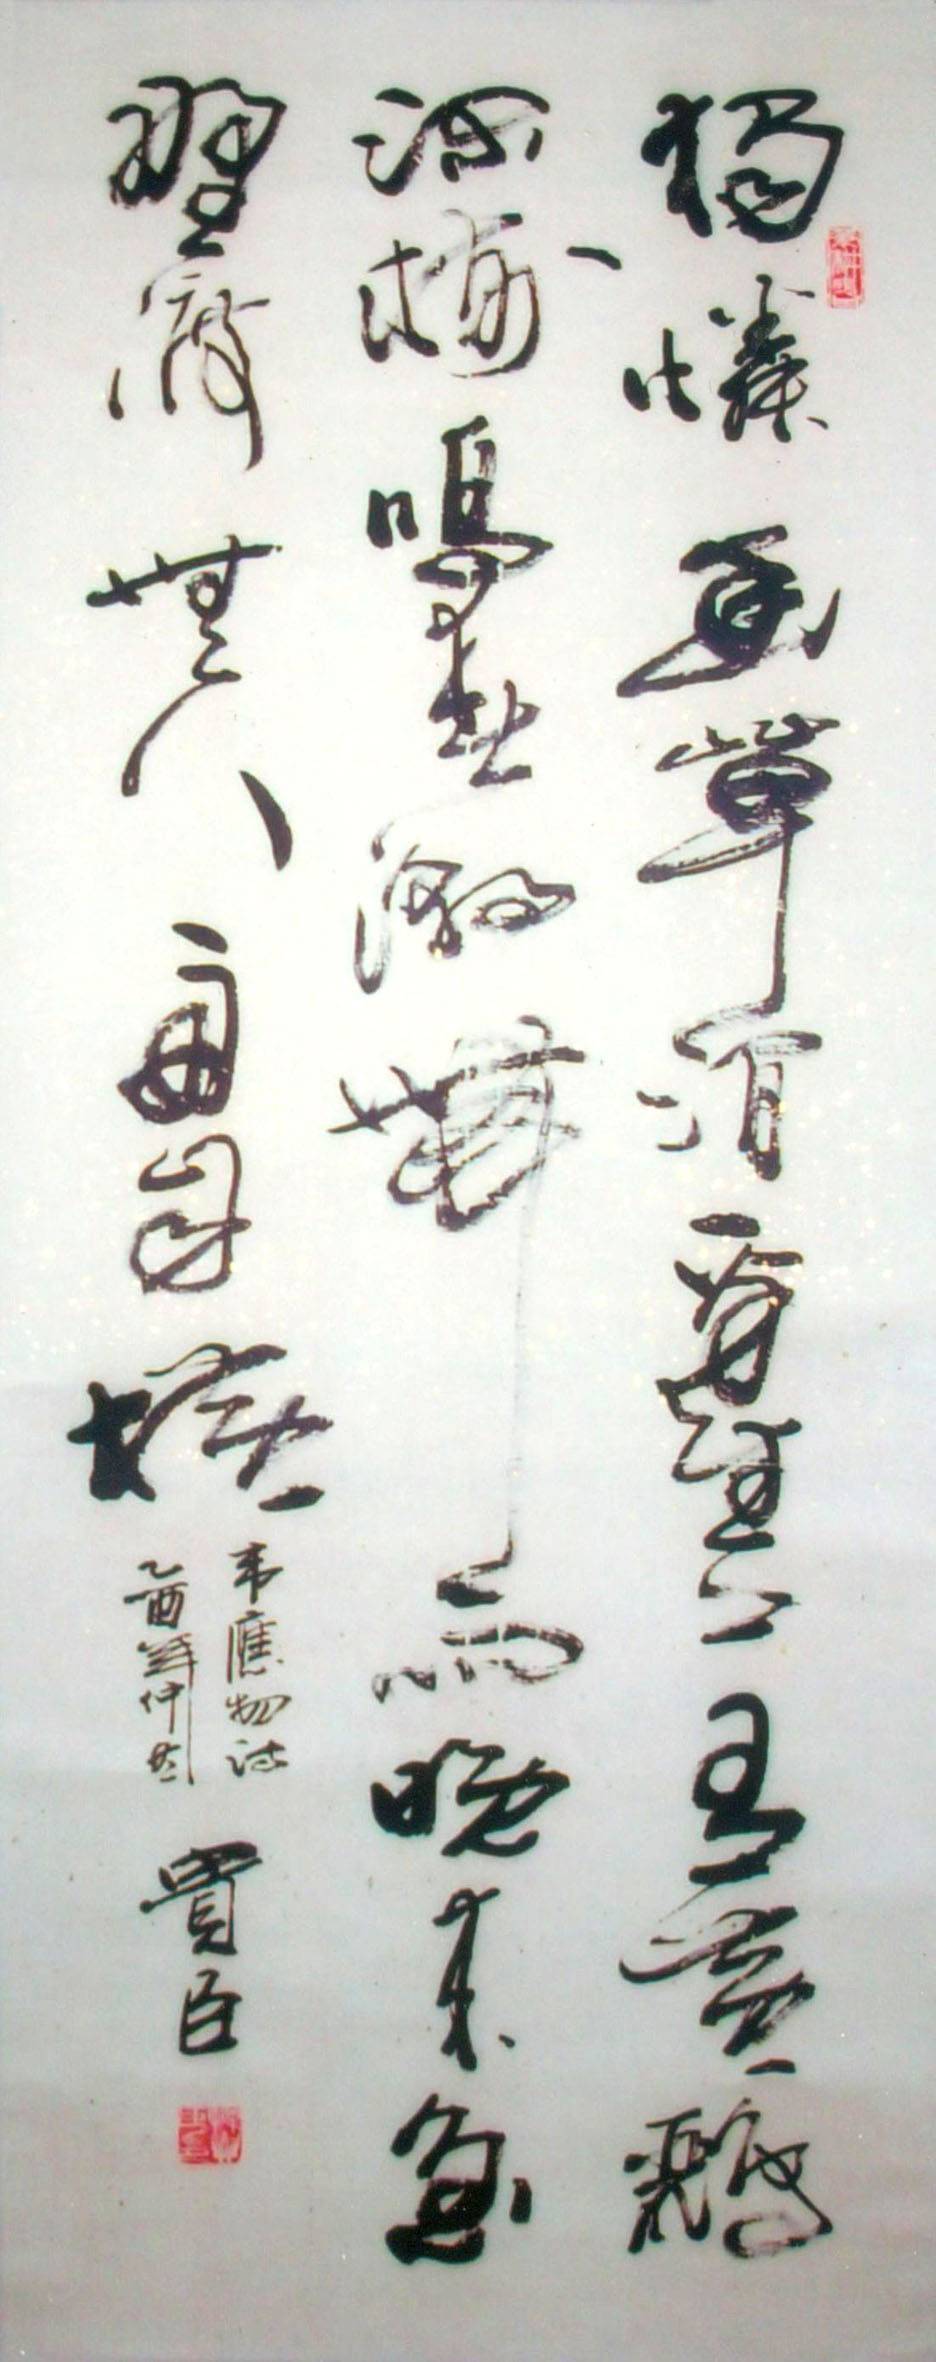 獨憐幽草澗邊生上有黃鸝
深樹鳴春潮帶雨晚來急
野渡無人舟自橫
韦應物诗
乙酉年仲
買臣